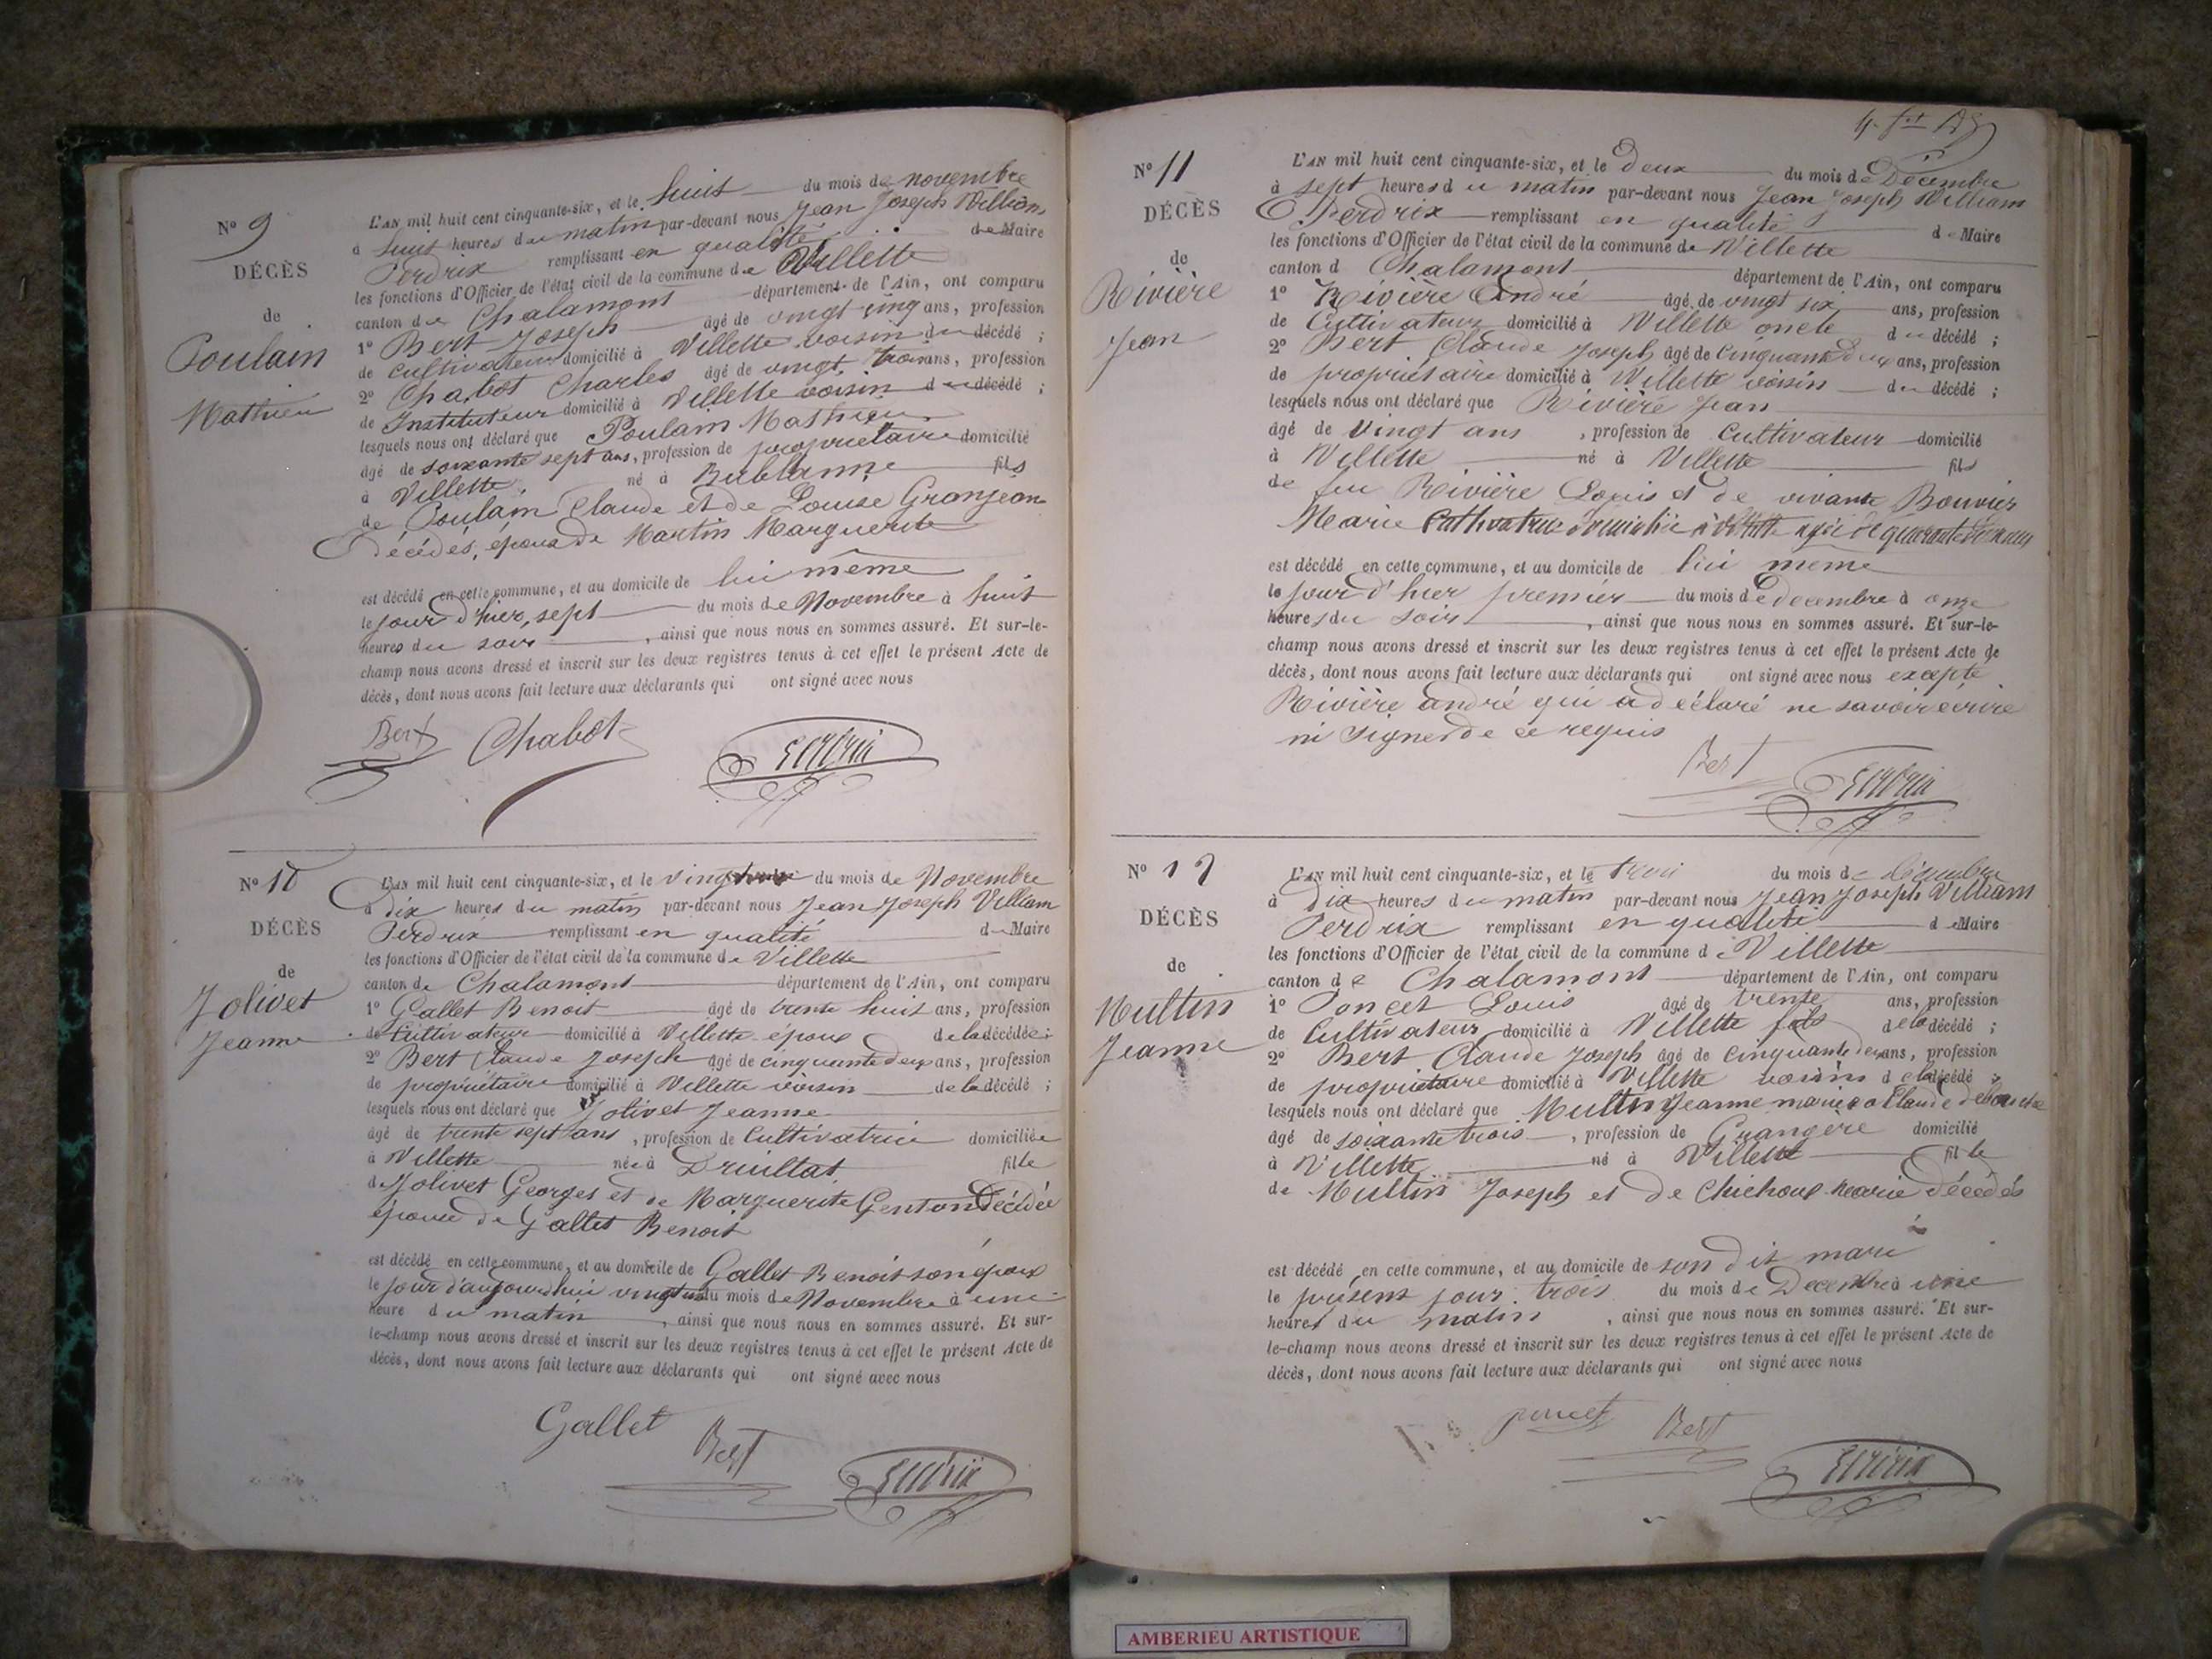 N° 9
DÉCÈS
de
Poulain
Mathieu
L'AN mil huit cent cinquante-six, et le huit du mois de novembre
à huit heures du matin par-devant nous Jean Joseph William
Perdrix remplissant en qualité de Maire
les fonctions d'Officier de l'état civil de la commune de Villette
canton de Chalamont département de l'Ain, ont comparu
1° Bert Joseph âgé de vingt cinq ans, profession
de cultivateur domicilié à Villette voisin du décédé ;
2° Chabot Charles âgé de vingt trois ans, profession
de Instituteur domicilié à Villette voisin du décédé ;
lesquels nous ont déclaré que Poulain Mathieu
âgé de soixante sept ans, profession de propriétaire domicilié
à Villette, né à Bublanne fils
de Poulain Claude et de Louise Granjean
Décédés, époux de Martin Marguerite
est décédé en cette commune, et au domicile de lui même
le jour d'hier, sept du mois de Novembre à huit
heures du soir, ainsi que nous nous en sommes assuré. Et sur-le-
champ nous avons dressé et inscrit sur les deux registres tenus à cet effet le présent Acte de
décès, dont nous avons fait lecture aux déclarants qui ont signé avec nous
Bert Chabot Perdrix
N° 10
DÉCÈS
de
Jolivet
Jeanne
L'AN mil huit cent cinquante-six, et le du mois de Novembre
à dix heures du matin par-devant nous Jean Joseph William
Perdrix remplissant en qualité de Maire
les fonctions d'Officier de l'état civil de la commune de Villette
canton de Chalamont département de l'Ain, ont comparu
1° Gallet Benoit âgé de trente huit ans, profession
de Cultivateur domicilié à Villette époux de la décédée ;
2° Bert Claude Joseph âgé de cinquante deux ans, profession
de propriétaire domicilié à Villette voisin de la décédé ;
lesquels nous ont déclaré que Jolivet Jeanne
âgé de trente sept ans, profession de Cultivatrice domiciliée
à Villette née à Druillat fille
de Jolivet Georges et de Marguerite Genton Décédée
épouse de Gallet Benoit
est décédé en cette commune, et au domicile de Gallet Benoit son époux
le jour d'aujourdhui du mois de Novembre à une
heure du matin, ainsi que nous nous en sommes assuré. Et sur-
le-champ nous avons dressé et inscrit sur les deux registres tenus à cet effet le présent Acte de
décès, dont nous avons fait lecture aux déclarants qui ont signé avec nous
Gallet Bert Perdrix
N° 11
DÉCÈS
de
Rivière
Jean
L'AN mil huit cent cinquante-six, et le deux du mois de Décembre
à sept heures du matin par-devant nous Jean Joseph William
Perdrix remplissant en qualité de Maire
les fonctions d'Officier de l'état civil de la commune de Villette
canton d Chalamont département de l'Ain, ont comparu
1° Rivière André âgé de vingt six ans, profession
de Cultivateur domicilié à Villette oncle du décédé ;
2° Bert Claude Joseph âgé de cinquante deux ans, profession
de propriétaire domicilié à Villette voisin du décédé ;
lesquels nous ont déclaré que Rivière Jean
âgé de vingt ans, profession de Cultivateur domicilié
à Villette né à Villette fils
de feu Rivière Louis et de vivante Bouvier
Marie Cultivatrice domiciliée à Villette agée de quarante ans
est décédé en cette commune, et au domicile de lui meme
le jour d'hier premier du mois de decembre à onze
heures du soir, ainsi que nous nous en sommes assuré. Et sur-le-
champ nous avons dressé et inscrit sur les deux registres tenus à cet effet le présent Acte de
décès, dont nous avons fait lecture aux déclarants qui ont signé avec nous excepté
Rivière andré qui a déclaré ne savoir écrire
ni signer de ce requis
Bert Perdrix
N° 12
DÉCÈS
de
Multin
Jeanne
L'AN mil huit cent cinquante-six, et le trois du mois de décembre
à Dix heures du matin par-devant nous Jean Joseph William
Perdrix remplissant en qualité de Maire
les fonctions d'Officier de l'état civil de la commune d Villette
canton de Chalamont département de l'Ain, ont comparu
1° Poncet Louis âgé de trente ans, profession
de Cultivateur domicilié à Villette fils de la décédé ;
2° Bert Claude Joseph âgé de cinquante deux ans, profession
de propriétaire domicilié à Villette voisin de la décédé ;
lesquels nous ont déclaré que Multin Jeanne mariée a Claude
âgé de soixante trois, profession de domicilié
à Villette né à Villette fille
de Multin Joseph et de Chichoux Marie décédés
est décédé en cette commune, et au domicile de son dit mari
le présent jour trois du mois de Decembre à une
heures du matin, ainsi que nous nous en sommes assuré. Et sur-
le-champ nous avons dressé et inscrit sur les deux registres tenus à cet effet le présent Acte de
décès, dont nous avons fait lecture aux déclarants qui ont signé avec nous
poncet Bert Perdrix
AMBERIEU ARTISTIQUE